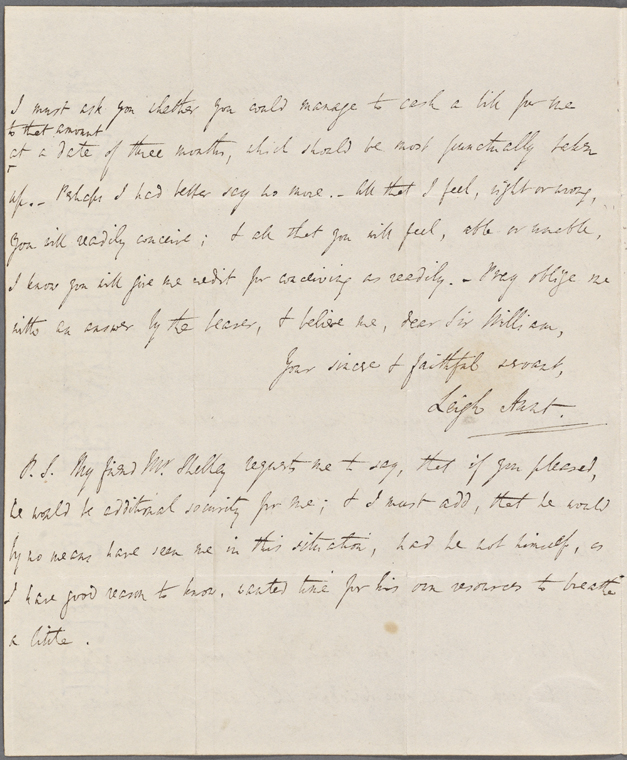 I must ask you whether you could manage to cash a bill for me
to that amount
at a date of three months, which should be most punctually taken
up. – Perhaps I had better say no more. – All that I feel, right or wrong,
you will readily conceive; & all that you will feel, able or unable,
I know you will give me credit for conceiving as readily. – Pray oblige me
with an answer by the bearer, & believe me, dear Sir William,
Your sincere & faithful servant,
Leigh Hunt.
P.S. My friend Mr. Shelley requests me to say, that if you pleased,
he would be additional security for me; & I must add, that he would
by no means have seen me in this situation, had he not himself, as
I have good reason to know, wanted time for his own resources to breathe
a little.